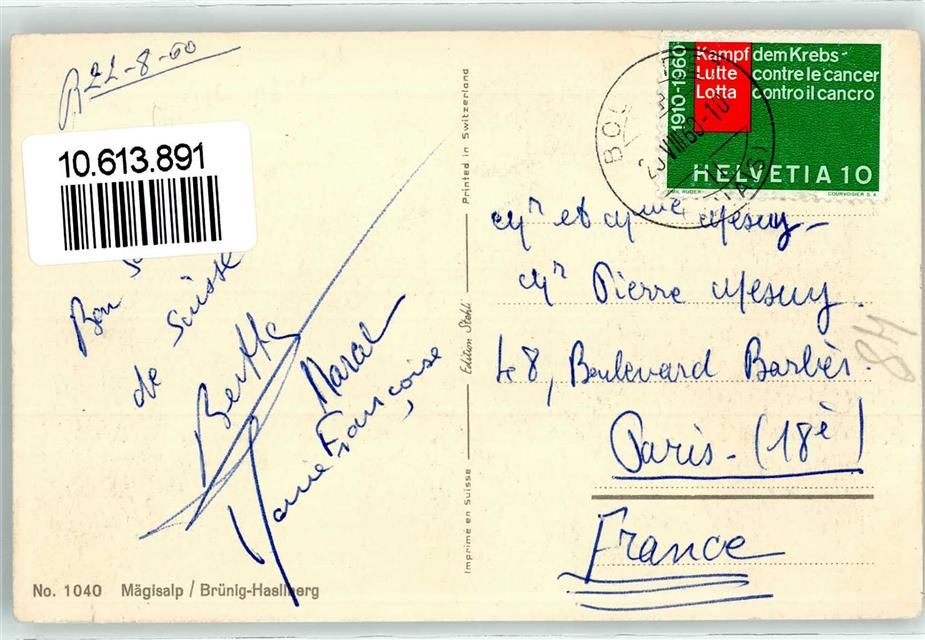 R 22-8-60
10.613.891
Bon
de Suisse
Bertha
Marcel
Marie Françoise
No. 1040 Mägisalp / Brünig-Hasliberg
Printed in Switzerland
Edition Stehli
Imprimé en Suisse
1910-1960
Kampf dem Krebs-
Lutte contre le cancer
Lotta contro il cancro
HELVETIA 10
COURVOISIER S.A.
VIII.60-10
Mr et Mme Mesuy
Mr Pierre Mesuy.
48, Boulevard Barbès.
Paris - (18è)
France
84